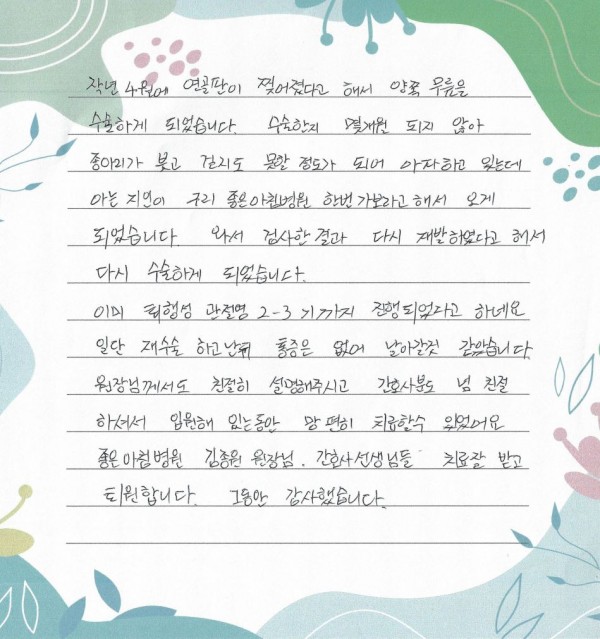 작년 4월에 연골판이 찢어졌다고 해서 양쪽 무릎을
수술하게 되었습니다. 수술한지 몇개월 되지 않아
종아리가 붓고 걷지도 못할 정도가 되어 아자하고 있는데
아는 지인이 구리 좋은아침병원 한번 가보라고 해서 오게
되었습니다. 와서 검사한 결과 다시 재발하였다고 해서
다시 수술하게 되었습니다.
이미 퇴행성 관절염 2-3기까지 진행되었다고 하네요
일단 재수술 하고난뒤 통증은 없어 날아갈것 같았습니다
원장님께서도 친절히 설명해주시고 간호사분도 넘 친절
하셔서 입원해 있는동안 맘 편히 치료할수 있었어요
좋은아침병원 김종원 원장님. 간호사선생님들 치료잘 받고
퇴원합니다. 그동안 감사했습니다.